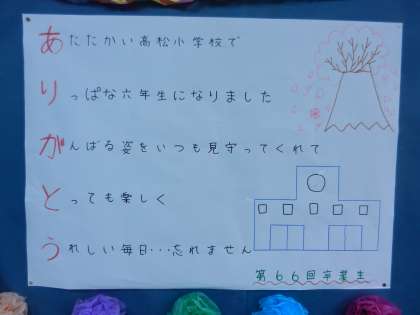 あたたかい高松小学校で
りっぱな六年生になりました
がんばる姿をいつも見守ってくれて
とっても楽しく
うれしい毎日…忘れません
第66回卒業生